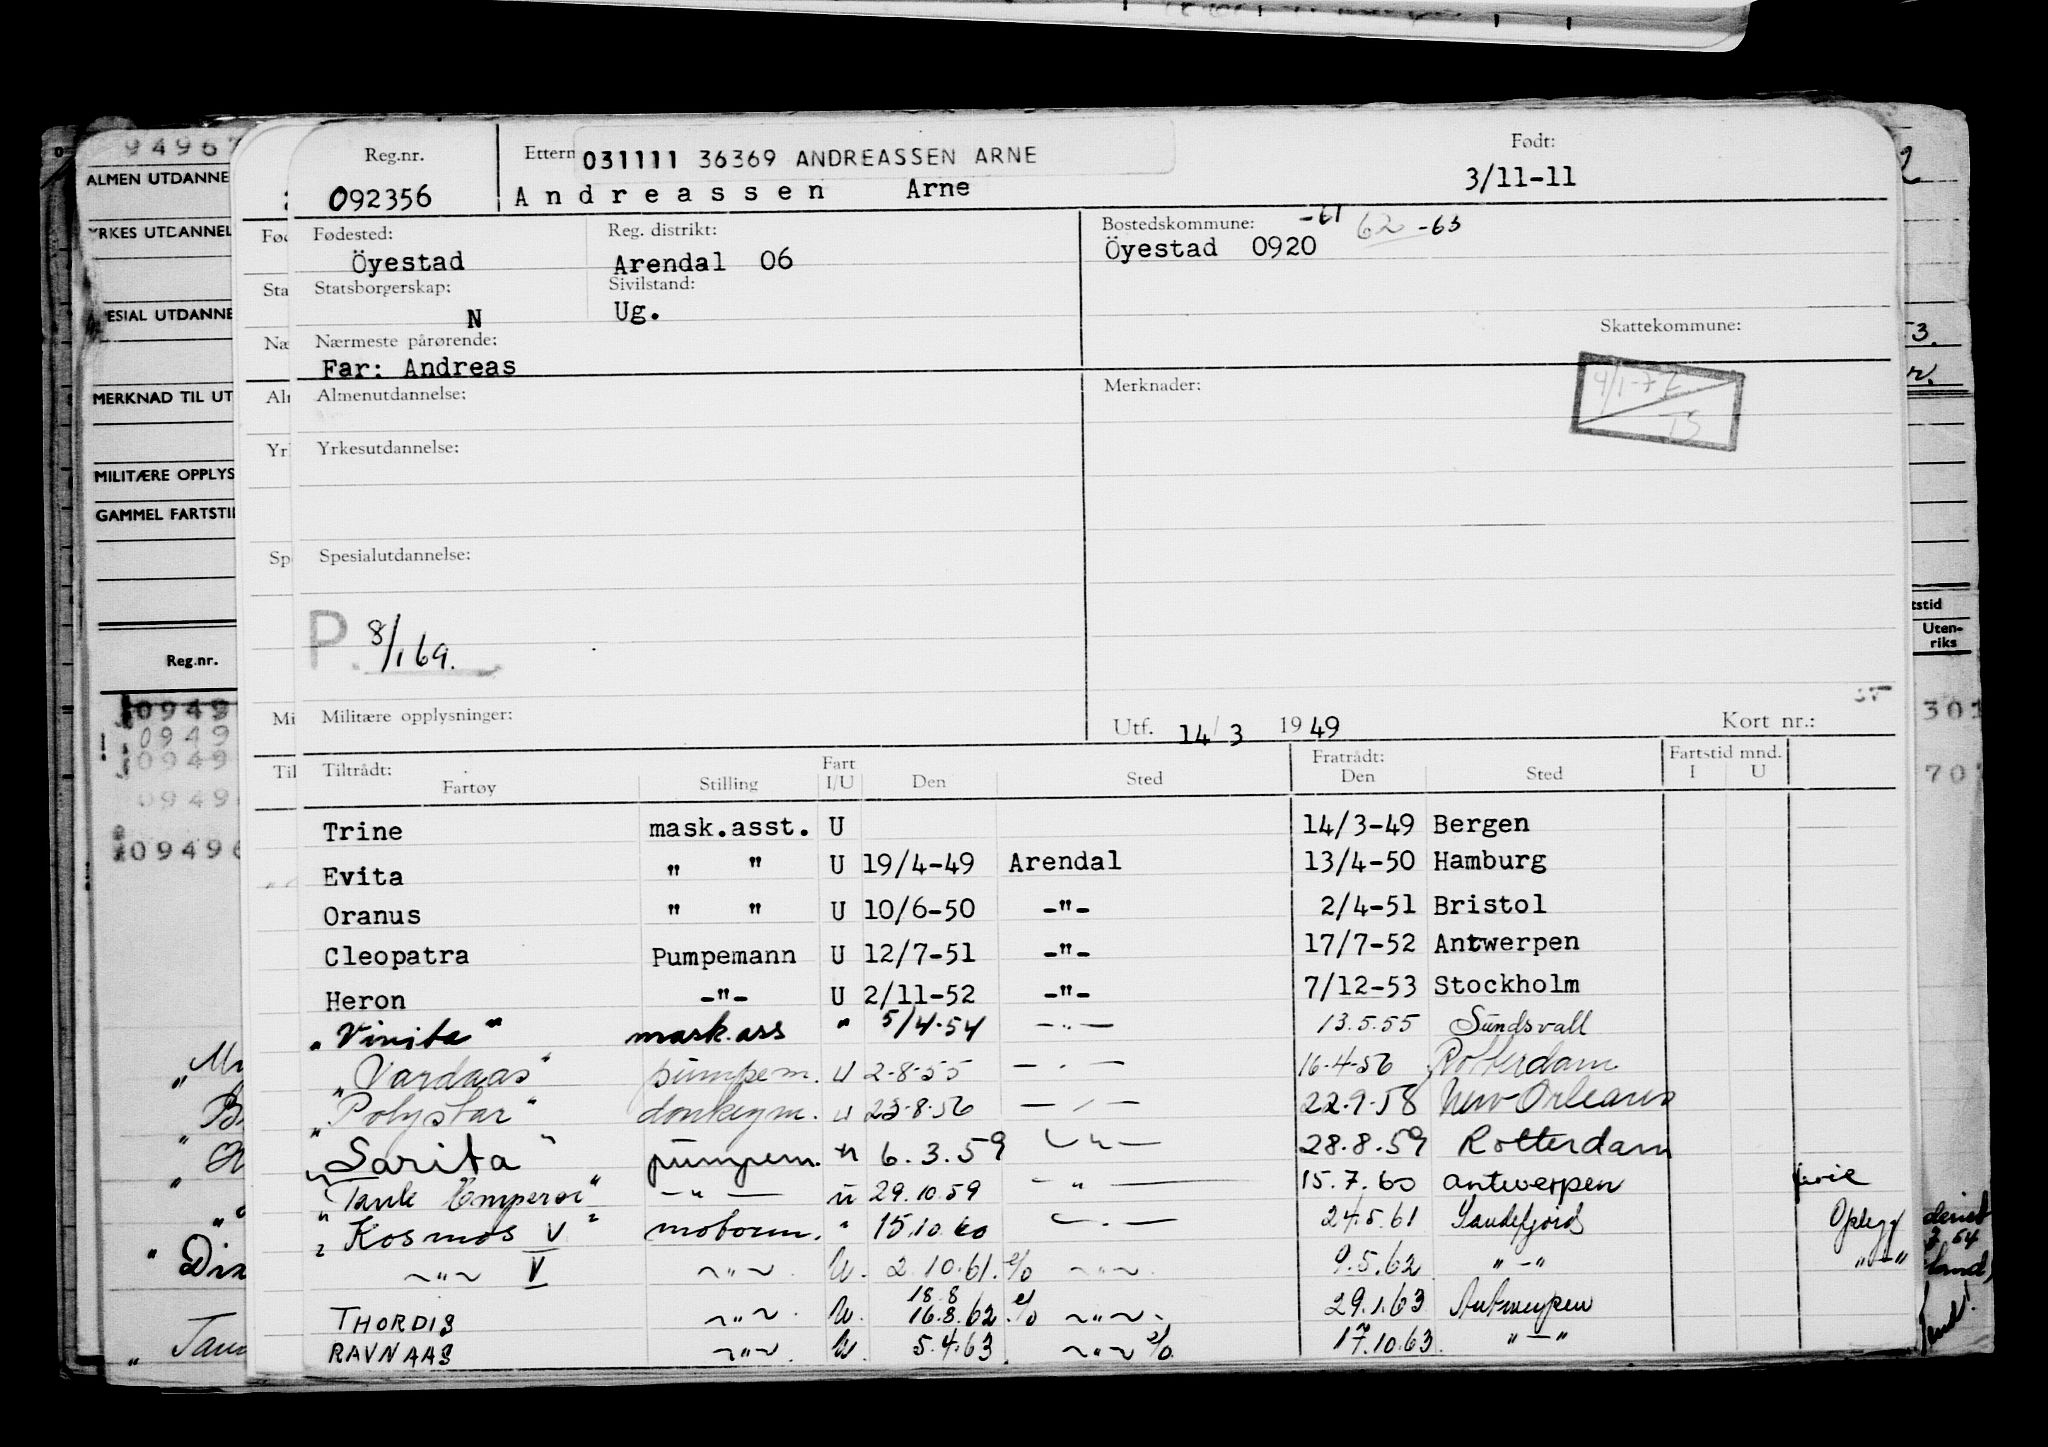 Reg.nr. Ettern 031111 36369 ANDREASSEN ARNE Født:
092356 Andreassen Arne 3/11-11
Fødested: Reg. distrikt: Bostedskommune: -61 62 -63
Öyestad Arendal 06 Öyestad 0920
Statsborgerskap: Sivilstand:
N Ug.
Nærmeste pårørende: Skattekommune:
Far: Andreas
Almenutdannelse: Merknader: 4/1-72
TS
Yrkesutdannelse:
Spesialutdannelse:
P. 8/1 69.
Militære opplysninger: Utf. 14/3 1949 Kort nr.:
Tiltrådt: Fart Fratrådt: Fartstid mnd.
Fartøy Stilling I/U Den Sted Den Sted I U
Trine mask.asst. U 14/3-49 Bergen
Evita " " U 19/4-49 Arendal 13/4-50 Hamburg
Oranus " " U 10/6-50 -"- 2/4-51 Bristol
Cleopatra Pumpemann U 12/7-51 -"- 17/7-52 Antwerpen
Heron -"- U 2/11-52 -"- 7/12-53 Stockholm
"Vinita" mask.ass " 5/4-54 -"- 13.5.55 Sundsvall
"Vardaas" pumpem. U 2-8-55 -"- 16-4-56 Rotterdam
"Polystar" donkeym. U 23-8-56 -"- 22.9.58 New Orleans
"Sarita" pumpem. " 6.3.59 -"- 28.8.59 Rotterdam
"Tank Emperor" -"- U 29.10.59 -"- 15.7.60 Antwerpen ferie
"Kosmos V" motorm. " 15.10.60 -"- 24.5.61 Sandefjord Oplegg
-"- V -"- U. 2.10.61. -"- 9.5.62 "-" "-"
18.8
THORDIS -"- U. 16.8.62 -"- 29.1.63 Antwerpen
RAVNAAS -"- U. 5.4.63 -"- 17.10.63. "-"
ALMEN UTDANNE
YRKES UTDANNEL
ESIAL UTDANNE
MERKNAD TIL UT
MILITÆRE OPPLYS
GAMMEL FARTSTI
Reg.nr.
0949
0949
0949
0949
09496
Uten-
riks
301
707